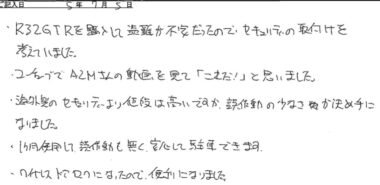 ご記入日 5年 7月 5日
・R32GTRを購入して盗難が不安だったので、セキュリティの取付けを
考えていました。
・ユーチューブでA2Mさんの動画を見て「これだ!」と思いました。
・海外製のセキュリティより値段は高いですが、誤作動の少なさが決め手に
なりました。
・1ヶ月使用して誤作動も無く、安心して駐車できます。
・ワイヤレスドアロックになったので、便利になりました。